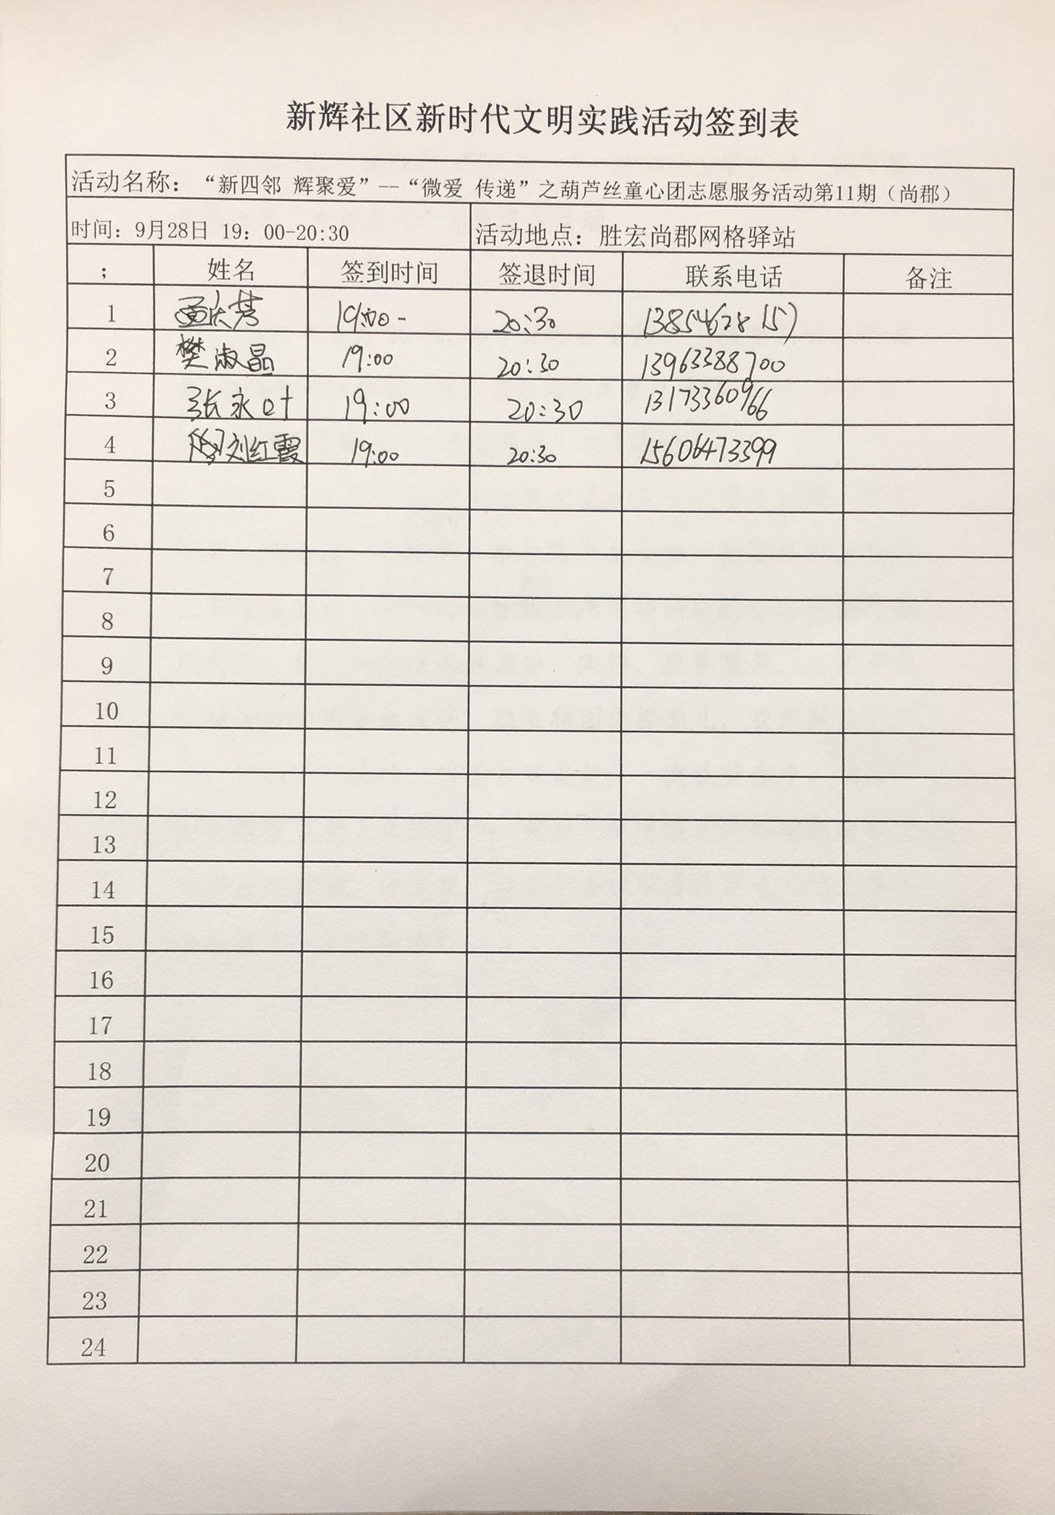 新辉社区新时代文明实践活动签到表
活动名称：“新四邻 辉聚爱”--“微爱 传递”之葫芦丝童心团志愿服务活动第11期（尚郡）
时间：9月28日 19：00-20:30 活动地点：胜宏尚郡网格驿站
； 姓名 签到时间 签退时间 联系电话 备注
1 19:00- 20:30
2 樊淑晶 19:00 20:30 13963388700
3 张永叶 19:00 20:30 13173360966
4 刘红霞 19:00 20:30 15606473399
5
6
7
8
9
10
11
12
13
14
15
16
17
18
19
20
21
22
23
24